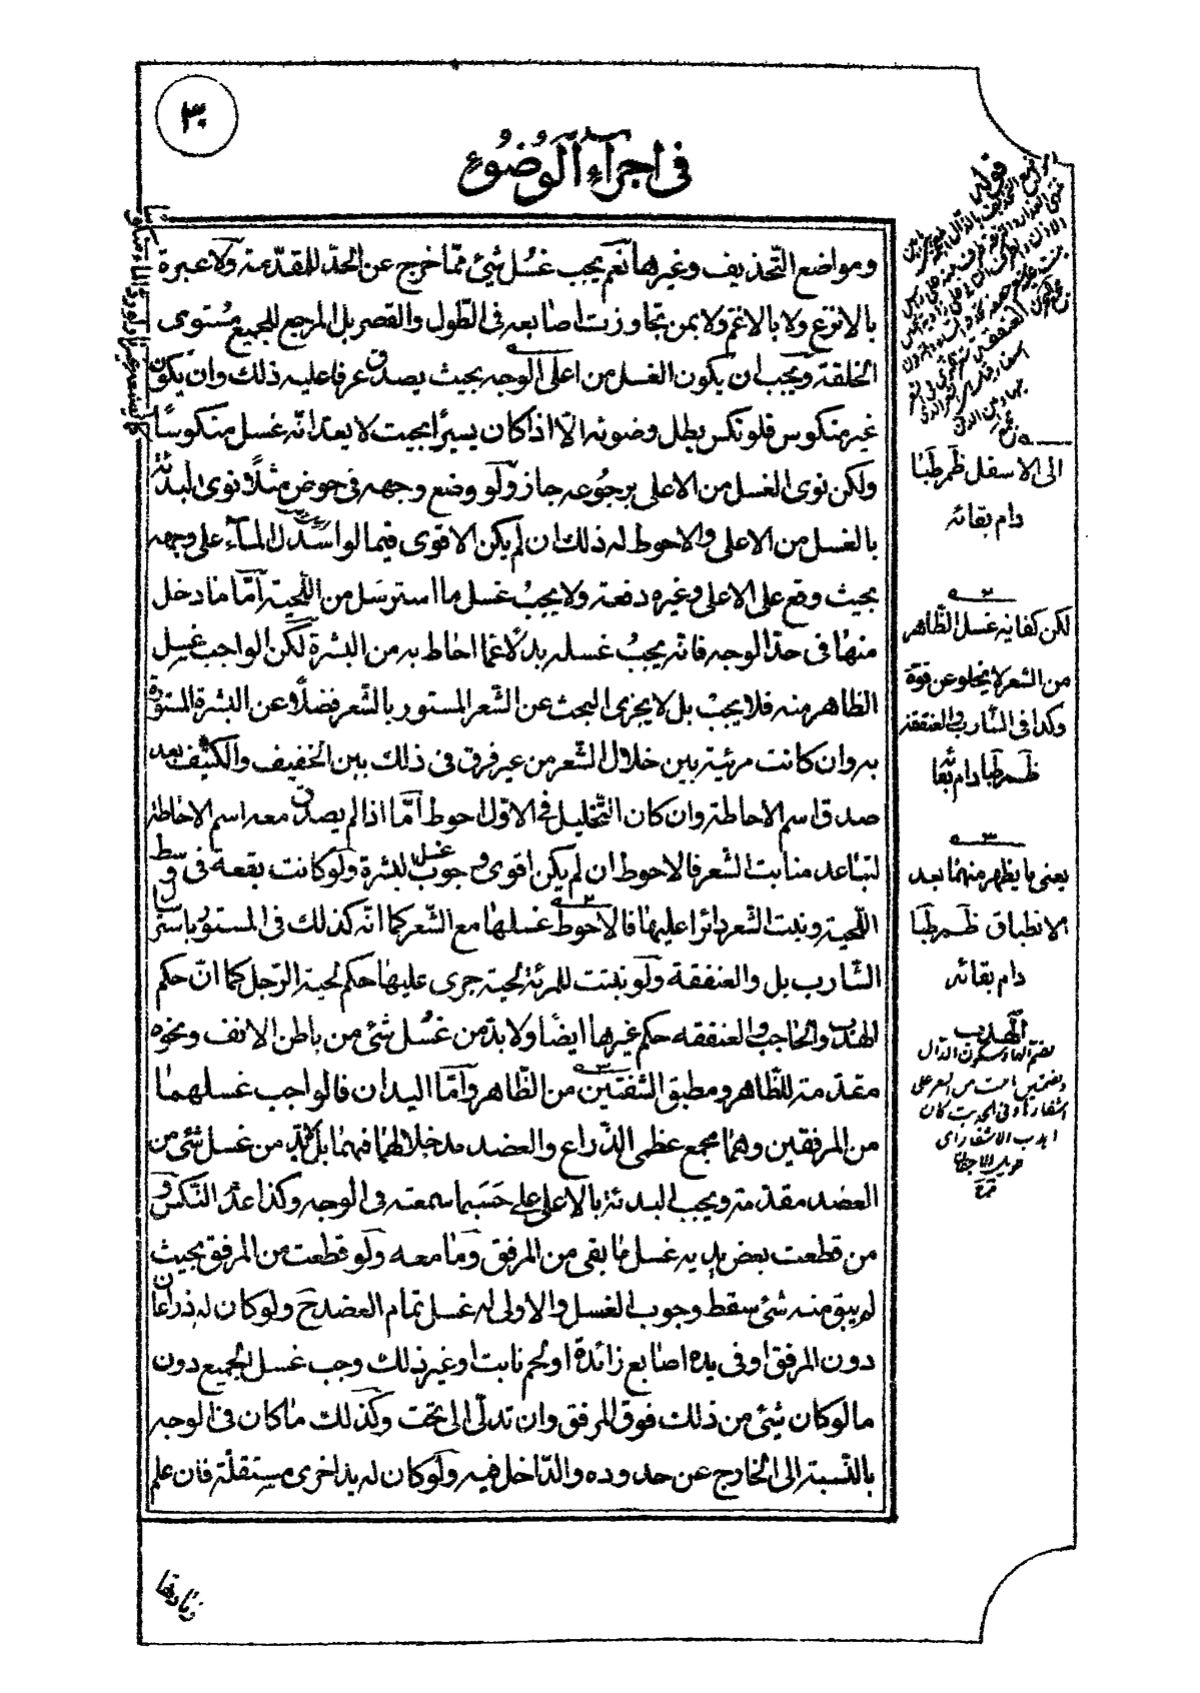 ٣٠
في اجزآء الوضوء
ومواضع التّحذيف وغيرها نعم يجب غسل شئ ممّا خرج عن الحدّ للمقدّمة ولا عبرة
بالانزع ولا بالاغم ولا بمن تجاوزت اصابعه في الطّول والقصر بل المرجع للجميع مستوى
الخلقة ويجب ان يكون الغسل من اعلى الوجه بحيث يصدق عرفا عليه ذلك وان يكون
غير منكوس فلو نكس بطل وضوئه الّا اذا كان يسيرا بحيث لا يعد انّه غسل منكوسًا
ولكن نوى الغسل من الاعلى برجوعه جاز ولو وضع وجهه في حوض مثلًا نوى البدئة
بالغسل من الاعلى والاحوط له ذلك ان لم يكن الاقوى فيما لو اسدل الماء على وجهه
بحيث وقع على الاعلى وغيره دفعة ولا يجب غسل ما استرسل من اللّحية امّا ما دخل
منها في حدّ الوجه فانّه يجب غسله بدلًا عمّا احاط به من البشرة لكن الواجب غسل
الظاهر منه فلا يجب بل لا يجزى البحث عن الشّعر المستور بالشّعر فضلًا عن البشرة المستورة
به وان كانت مرئية بين خلال الشّعر من غير فرق في ذلك بين الخفيف والكثيف بعد
صدق اسم الاحاطة وان كان التّخليل في الاوّل احوط امّا اذا لم يصدق معه اسم الاحاطة
لتباعد منابت الشّعر فالاحوط ان لم يكن اقوى وجوب غسل البشرة ولو كانت بقعة في وسط
اللّحية ونبت الشّعر دائرا عليها فالاحوط غسلها مع الشّعر كما انّه كذلك في المستور باسترسال
الشّارب بل والعنفقة ولو نبتت للمرئة لحية جرى عليها حكم لحية الرّجل كما انّ حكم
الهدب والحاجب والعنفقه حكم غيرها ايضًا ولا بدّ من غسل شئ من باطن الانف ونحوه
مقدّمة للظّاهر ومطبق الشّفتين من الظّاهر وامّا اليدان فالواجب غسلهما
من المرفقين وهما مجمع عظمى الذّراع والعضد مدخلا لهما فيهما بل لابدّ من غسل شئ من
العضد مقدّمة ويجب البدئة بالاعلى على حسبما سمعته في الوجه وكذا عدم النّكس و
من قطعت بعض يديه غسل ما بقى من المرفق وما معه ولو قطعت من المرفق بحيث
لم يبق منه شئ سقط وجوب الغسل والاولى له غسل تمام العضد ح ولو كان له ذراعان
دون المرفق او في يده اصابع زائدة او لحم نابت او غير ذلك وجب غسل الجميع دون
ما لو كان شئ من ذلك فوق المرفق وان تدلّى الى تحت وكذلك ما كان في الوجه
بالنّسبة الى الخارج عن حدوده والدّاخل فيه ولو كان له يد اخرى مستقلّة فان علم
قوله
الى الاسفل ظم طبا
دام بقائه
٢
لكن كفاية غسل الظّاهر
من الشعر لا يخلو عن قوّة
وكذا في الشّارب والعنفقة
ظم طبا دام بقائه
٣
يعنى ما يظهر منهما بعد
الانطباق ظم طبا
دام بقائه
الهدب
بضمّ الهاء وسكون الدّال
وبضمّتين ما نبت من الشعر على
اشفارها وفي الحديث كان
اهدب الاشفار اى
طويل